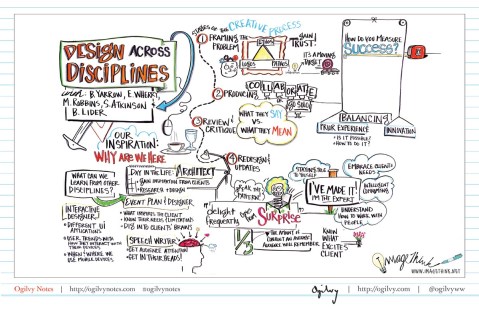 DESIGN ACROSS
DISCIPLINES
with: B. YARROW, E. WHERRY
M. ROBBINS, S. ATKINSON
B. LIDER
OUR
INSPIRATION:
WHY ARE WE HERE
WHAT CAN WE
LEARN FROM OTHER
DISCIPLINES?
INTERACTIVE
DESIGNER
DIFFERENT UI
USER TRENDS WITH
HOW THEY INTERACT WITH
WHEN & WHERE WE
USE MOBILE DEVICES
DAY IN THE LIFE: ARCHITECT
GAIN INSPIRATION FROM CLIENTS
RESEARCH + DESIGN
EVENT PLAN & DESIGNER
WHAT INSPIRES THE CLIENT
DIG INTO CLIENTS' BRAINS
SPEECH WRITER
GET AUDIENCE ATTENTION
GET IN THEIR HEADS!
STAGES OF THE CREATIVE PROCESS
1 FRAMING THE
PROBLEM
ETHOS
LOGOS PATHOS
GAIN
TRUST!
IT'S A MOVING
TARGET
2 PRODUCING
COLLABORATE
OR GO
SOLO
3 REVIEW &
CRITIQUE
WHAT THEY SAY
VS.
WHAT THEY MEAN
4 REDESIGN &
UPDATES
BREAK THE
PATTERN!
"delight
frequently
SURPRISE"
HOW DO YOU MEASURE
SUCCESS?
BALANCING
PRIOR EXPERIENCE
INNOVATION
IS IT POSSIBLE?
HOW TO DO IT?
STRONG
EMBRACE CLIENTS'
NEEDS
I'VE MADE IT!
I'M THE EXPERT
INTELLIGENT
UNDERSTAND
HOW TO WORK WITH
PEOPLE
KNOW
WHAT
EXCITES
CLIENT
ImageThink
WWW.IMAGETHINK.NET
Ogilvy Notes | http://ogilvynotes.com #ogilvynotes
Ogilvy | http://ogilvy.com | @ogilvyww